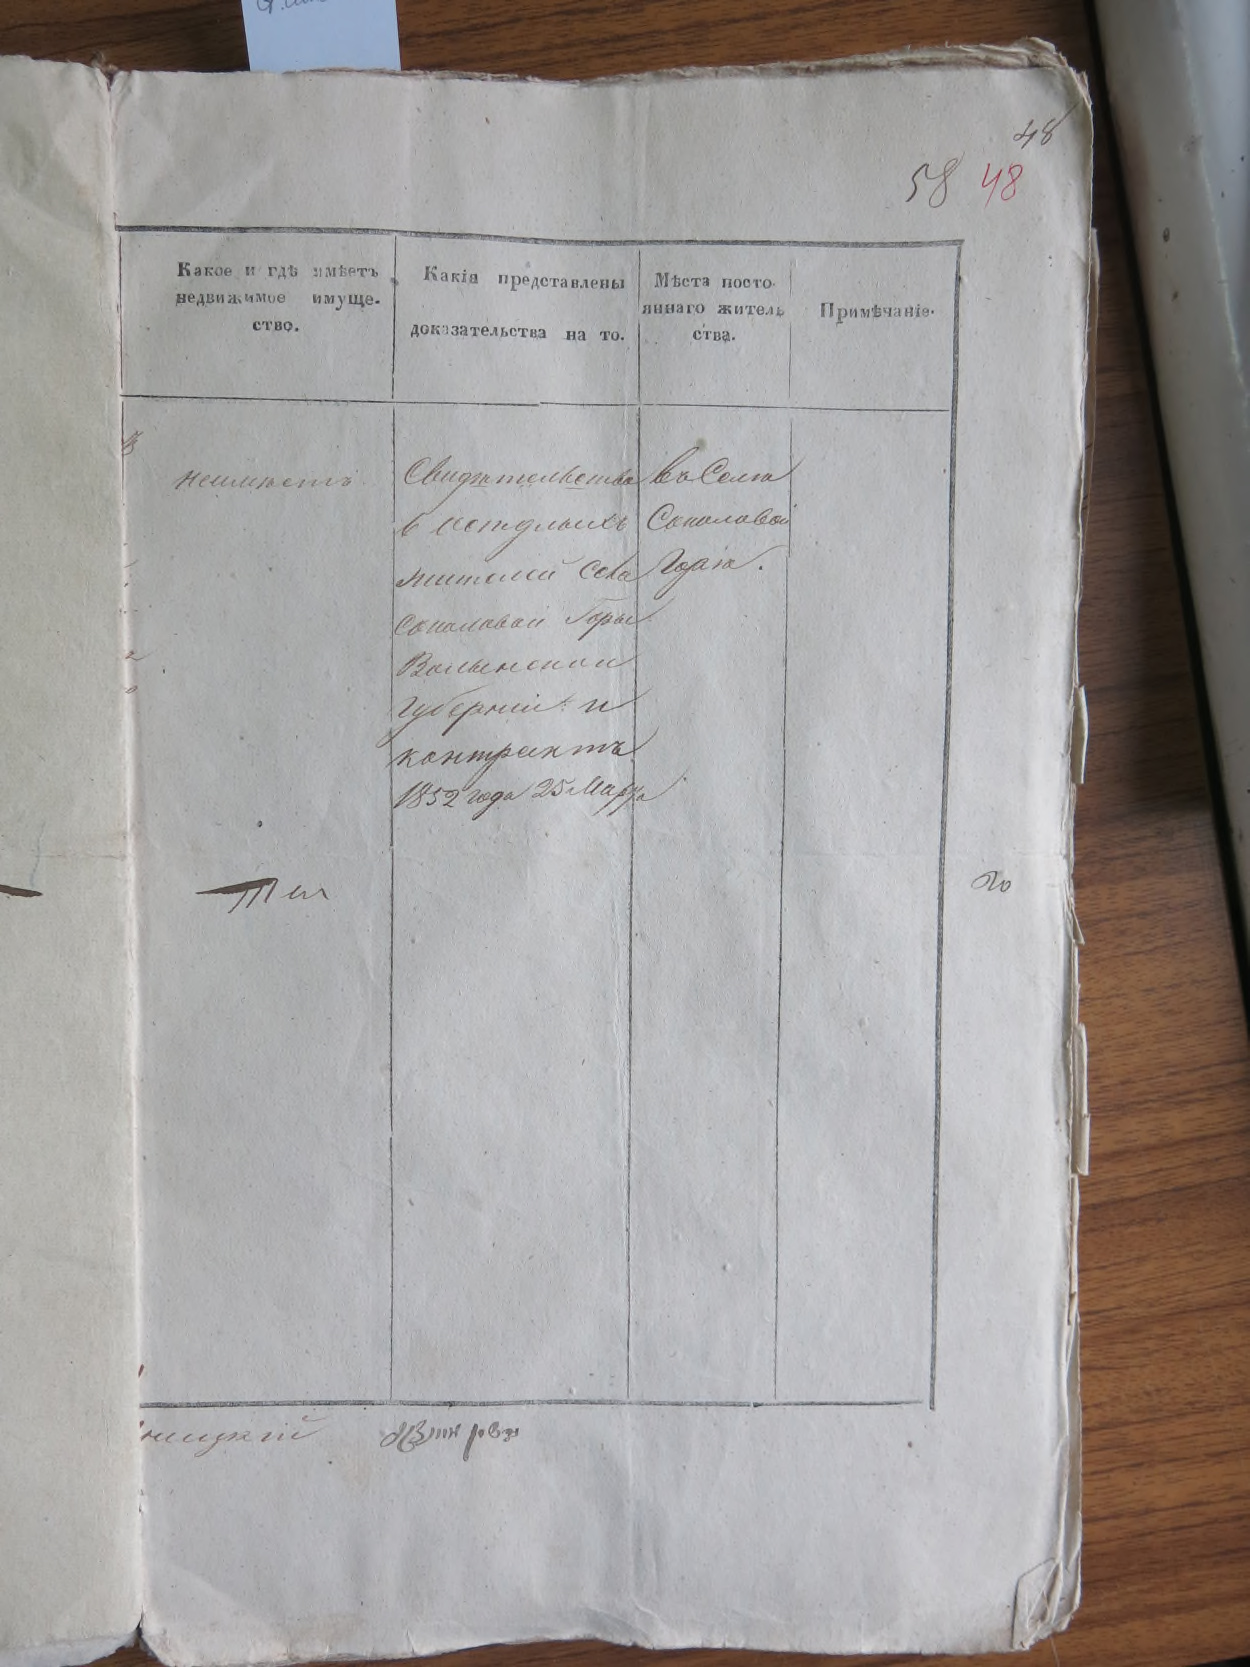 48
58 48
Какое и гдѣ имѣетъ
недвижимое имуще-
ство.
Какія представлены
доказательства на то.
Мѣста посто-
яннаго житель
ства.
Примѣчаніе.
неимѣетъ
Свидѣтельства
жителей села
Соколовой Горы
Волынской
Губерніи и
контрактъ
1852 года 25 Марта
въ Селѣ
Соколовой
Горѣ.
ницкій